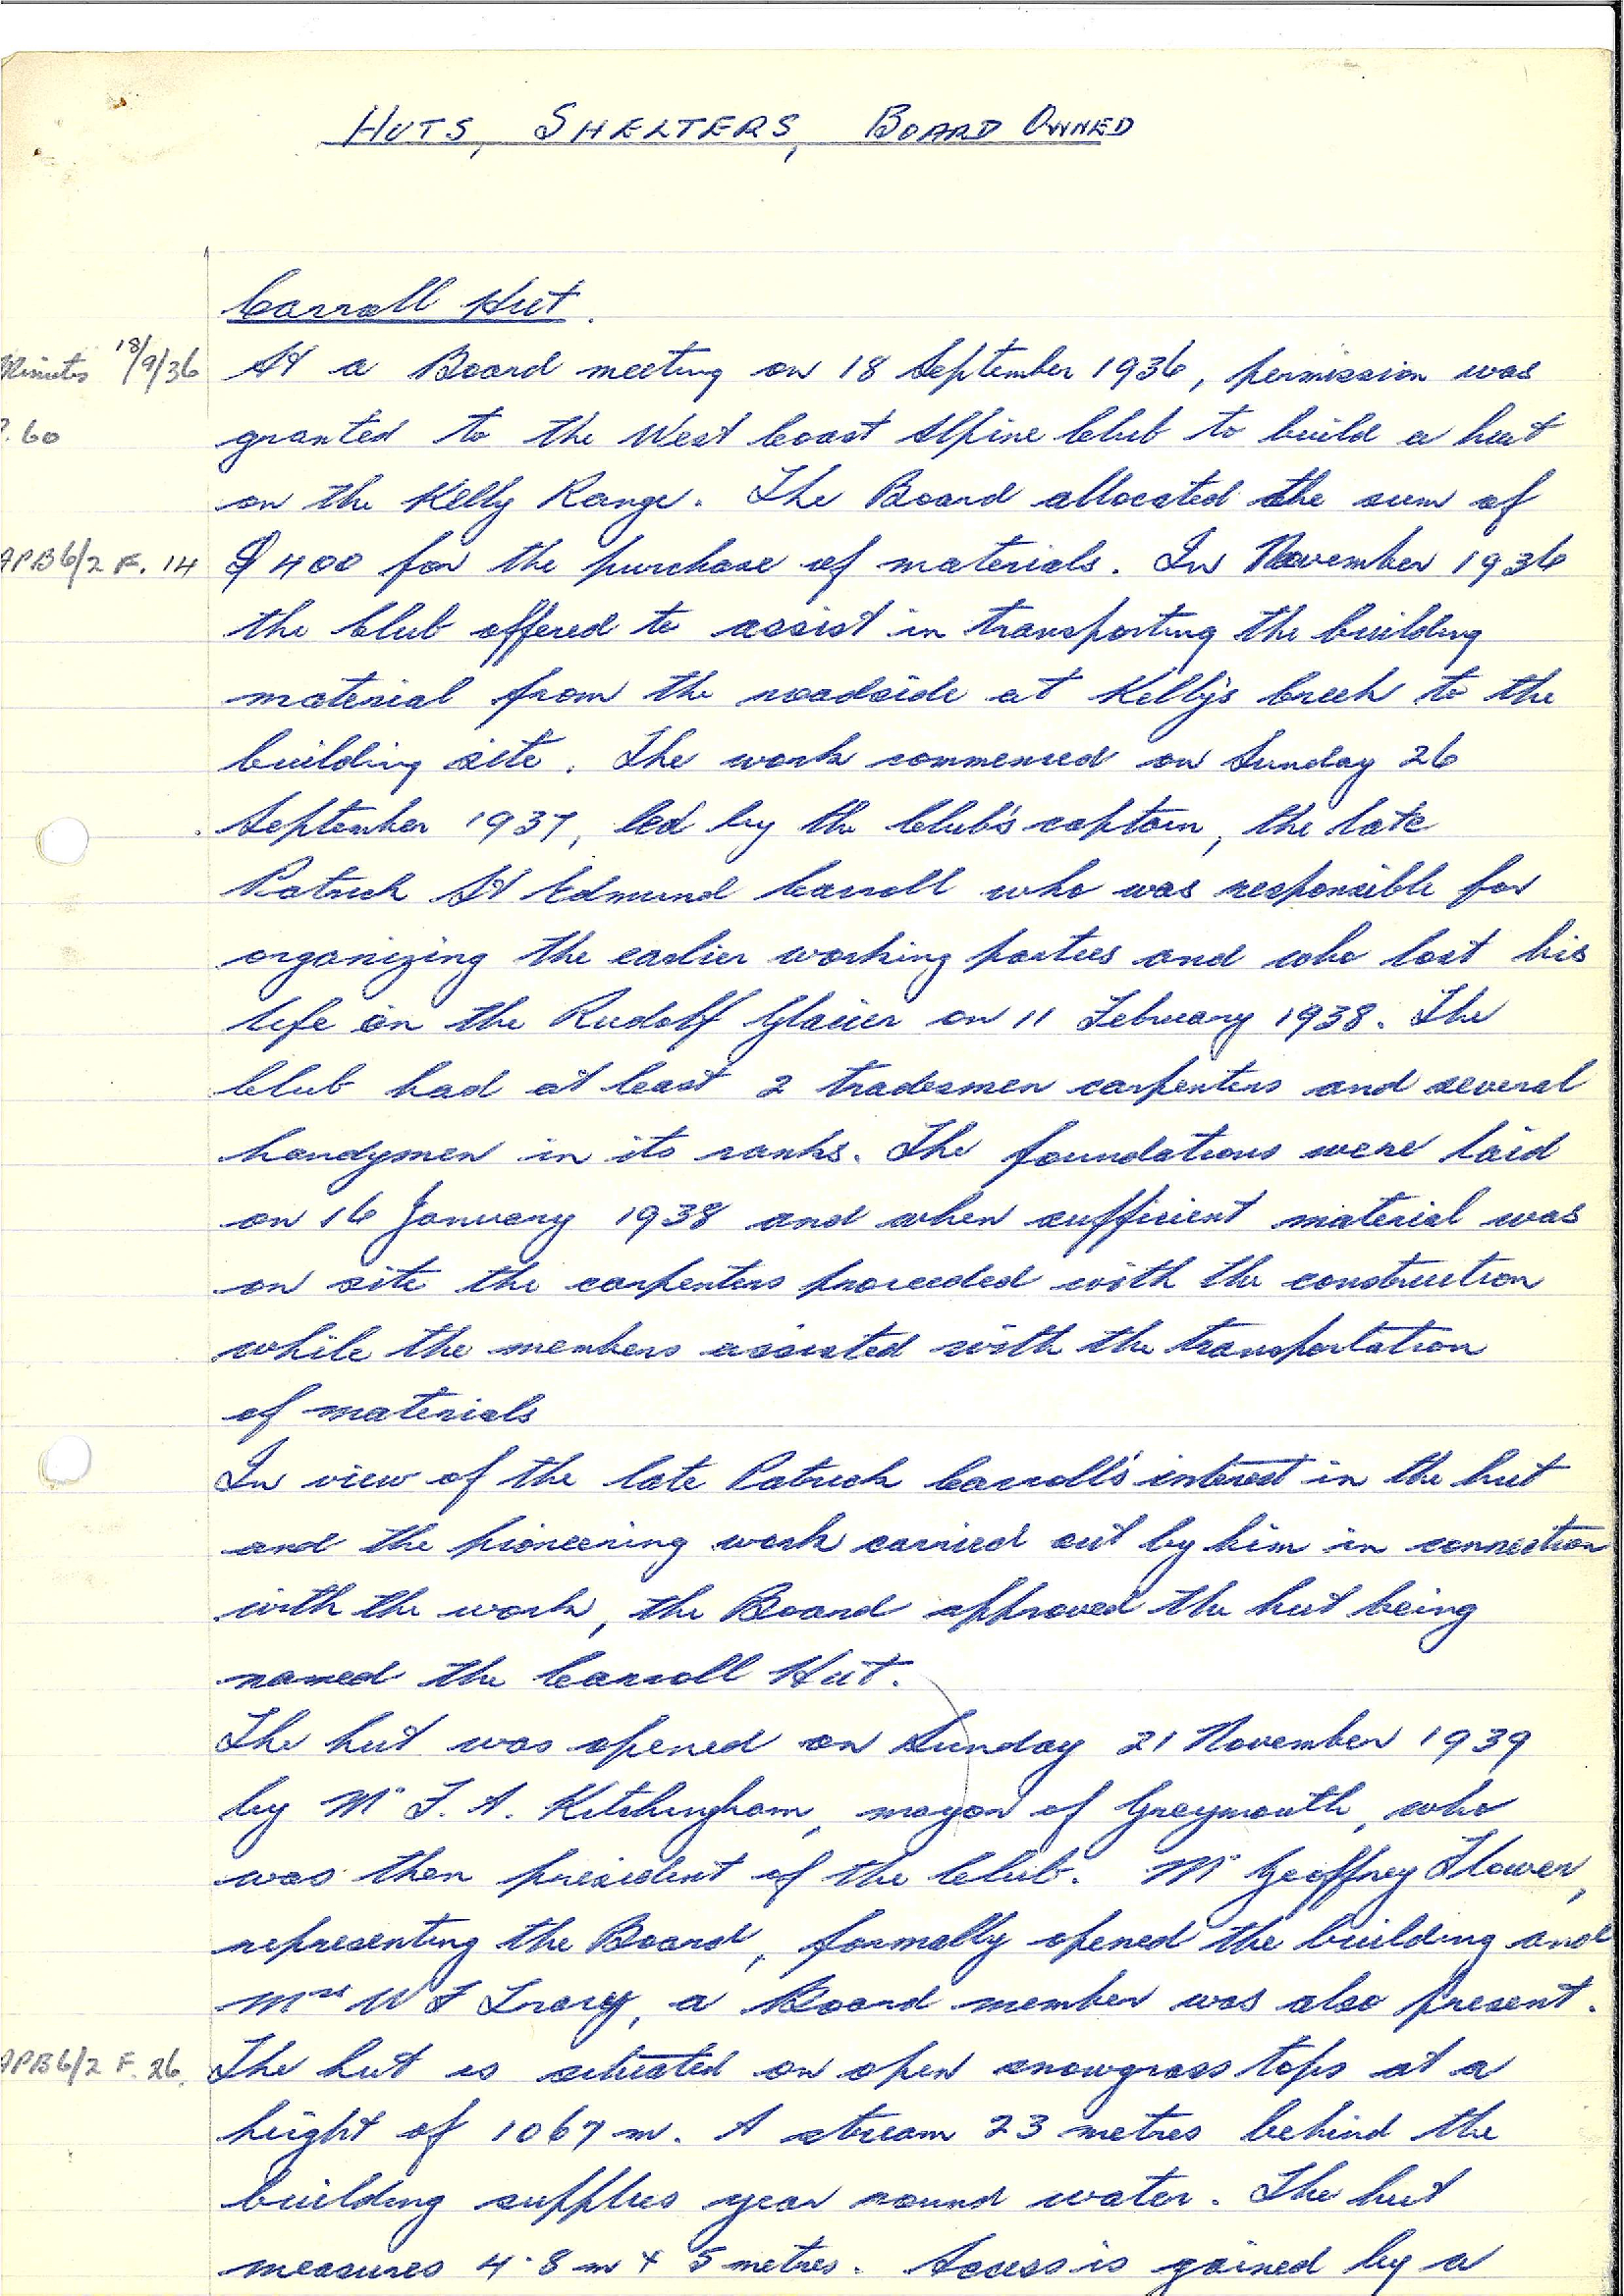 HUTS, SHELTERS, BOARD OWNED
Carroll Hut.
Minutes 18/9/36 At a Board meeting on 18 September 1936, permission was
P.60 granted to the West Coast Alpine Club to build a hut
on the Kelly Range. The Board allocated the sum of
APB6/2 F. 14 $400 for the purchase of materials. In November 1936
the Club offered to assist in transporting the building
material from the roadside at Kelly's Creek to the
building site. The work commenced on Sunday 26
September 1937, led by the Club's captain, the late
Patrick St Edmund Carroll who was responsible for
organizing the earlier working parties and who lost his
life on the Rudolf Glacier on 11 February 1938. The
Club had at least 2 tradesmen carpenters and several
handymen in its ranks. The foundations were laid
on 16 January 1938 and when sufficient material was
on site the carpenters proceeded with the construction
while the members assisted with the transportation
of materials
In view of the late Patrick Carroll's interest in the hut
and the pioneering work carried out by him in connection
with the work, the Board approved the hut being
named the Carroll Hut.
The hut was opened on Sunday 21 November 1939
by Mr F. A. Kitchingham, mayor of Greymouth, who
was then president of the Club. Mr Geoffrey Flower,
representing the Board, formally opened the building and
Mrs W F Tracy, a Board member was also present.
APB6/2 F. 26. The hut is situated on open snowgrass tops at a
height of 1067 m. A stream 23 metres behind the
building supplies year round water. The hut
measures 4.8 m x 5 metres. Access is gained by a